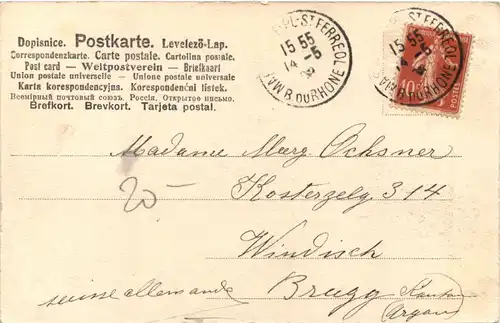 Dopisnice. Postkarte. Levelező-Lap.
Correspondenzkarte. Carte postale. Cartolina postale.
Post card — Weltpostverein — Briefkaart
Union postale universelle — Unione postale universale
Karta korespondencyjna. Korespondenční lístek.
Всемірный почтовый союз. Россія. Открытое письмо.
Brefkort. Brevkort. Tarjeta postal.
15 55
14-5
09
B. DU RHONE
15 55
14-5
B. DU RHONE
10
POSTES
Madame Marg Ochsner
Kosterzelg 314
20-
Windisch
suisse allemande
Brugg Kanton
Argau